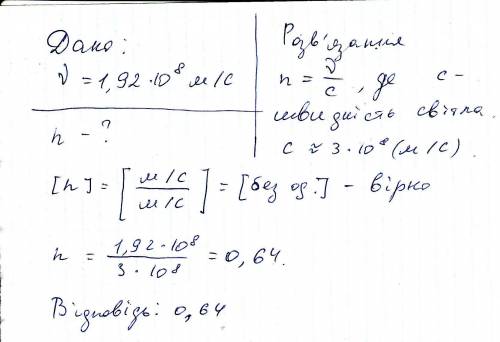 Дано:
v = 1,92·10⁸ м/с
n - ?
Розв'язання
n = v/c, де c -
швидкість світла.
c ≈ 3·10⁸ (м/с).
[n] = [м/с / м/с] = [без од.] - вірно
n = 1,92·10⁸ / 3·10⁸ = 0,64.
Відповідь: 0,64